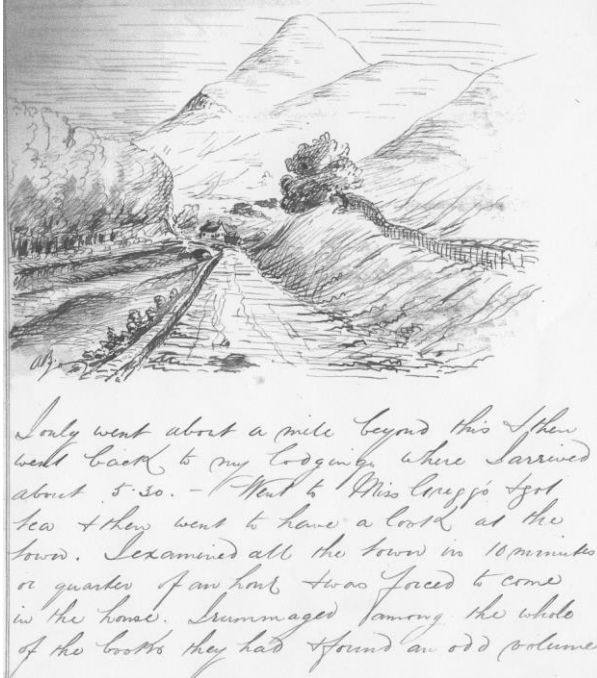 I only went about a mile beyond this & then
went back to my lodgings where I arrived
about 5.30. - Went to Miss Gregg's & got
tea & then went to have a look at the
town. I examined all the town in 10 minutes
or quarter of an hour & was forced to come
in the house. I rummaged among the whole
of the books they had & found an odd volume